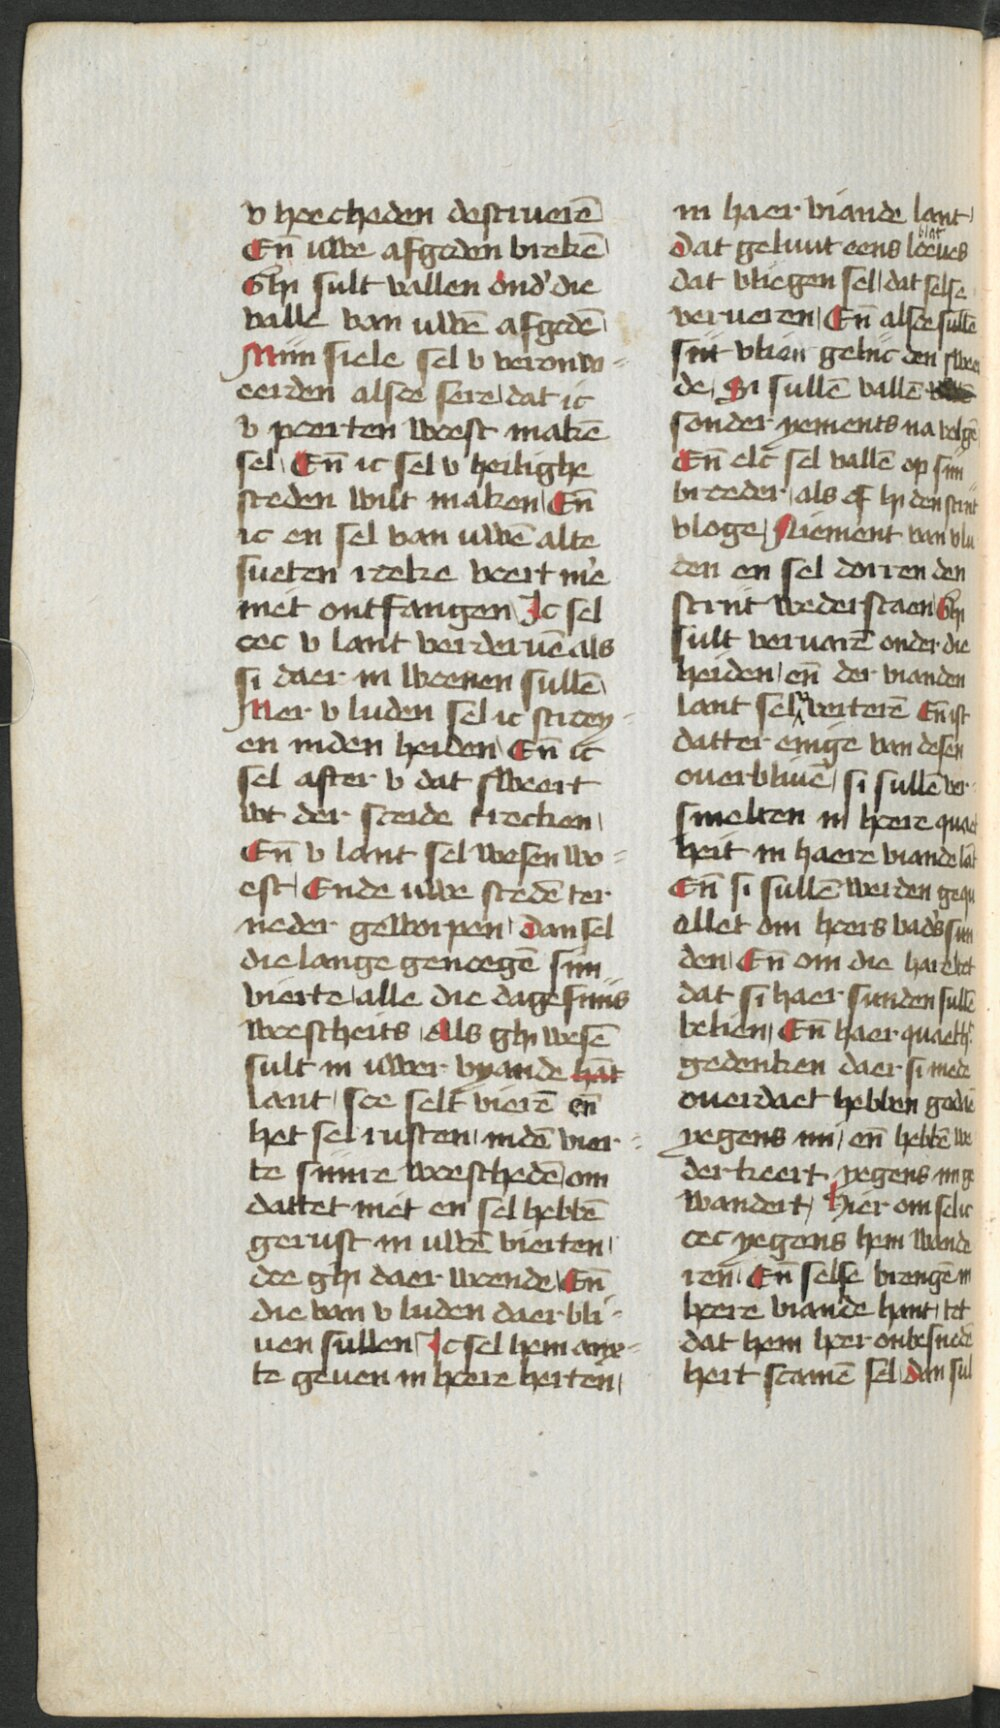 v hoecheden destruerē
Eñ uwe afgoden brekē
Ghi sult vallen ond' die
valle van uwē afgodē
Mijn siele sel v veronw-
eerden alsoe sere dat ic
v poerten woest makē
sel Eñ ic sel v heilighe
steden wilt maken Eñ
ic en sel van uwē alte
sueten roeke voert m'e
niet ontfangen Ic sel
oec v lant verderuē als
si daer in woenen sullē
Mer v luden sel ic stroy-
en inden heiden Eñ ic
sel after v dat sweert
wt der sceide trecken
Eñ v lant sel wesen wo-
est Ende uwe stedē ter
neder geworpen Dan sel
die lange genoegē sijn
vierte alle die dage sijns
woestheits Als ghi wesē
sult in uwer vyande hāt
lant soe selt vierē eñ
het sel rusten indē vier-
te sijnre woesthedē om
dattet niet en sel hebbē
gerust in uwē vierten
doe ghi daer woende Eñ
die van v luden daer bli-
uen sullen Ic sel hem anx-
te geuen in hoere herten
in haer viande lant
Dat geluut eens loeues blat
dat vliegen sel dat selse
verueren Eñ alsoe sullē
sijt vlien gelijc den swee
de Si sullē vallē
sonder yements na volgē
Eñ elc sel vallē op sijn
broeder als of hi den strijt
vloge Niement van v lu
den en sel dorren den
strijt wederstaen Ghi
sult veruarē onder die
heiden eñ der vianden
lant sel v verterē Eñ ist
datter enige van desen
ouerbliuē si sullē ver-
smelten in hoere quaet
heit in haere viande lāt
Eñ si sullē werden gequ
ellet om hoers vad's sun
den Eñ om die hare tot
dat si haer sunden sullē
belien Eñ haer quaeth'
gedenken daer si mede
ouerdaet hebben gedaē
yegens mi eñ hebbē we
derkeert yegens mi ge
wandert Hier om sel ic
oec yegens hem wande
ren Eñ selse brengē in
hoere viande hant tot
dat hem hoer onbesnedē
hert scamē sel Dan sul